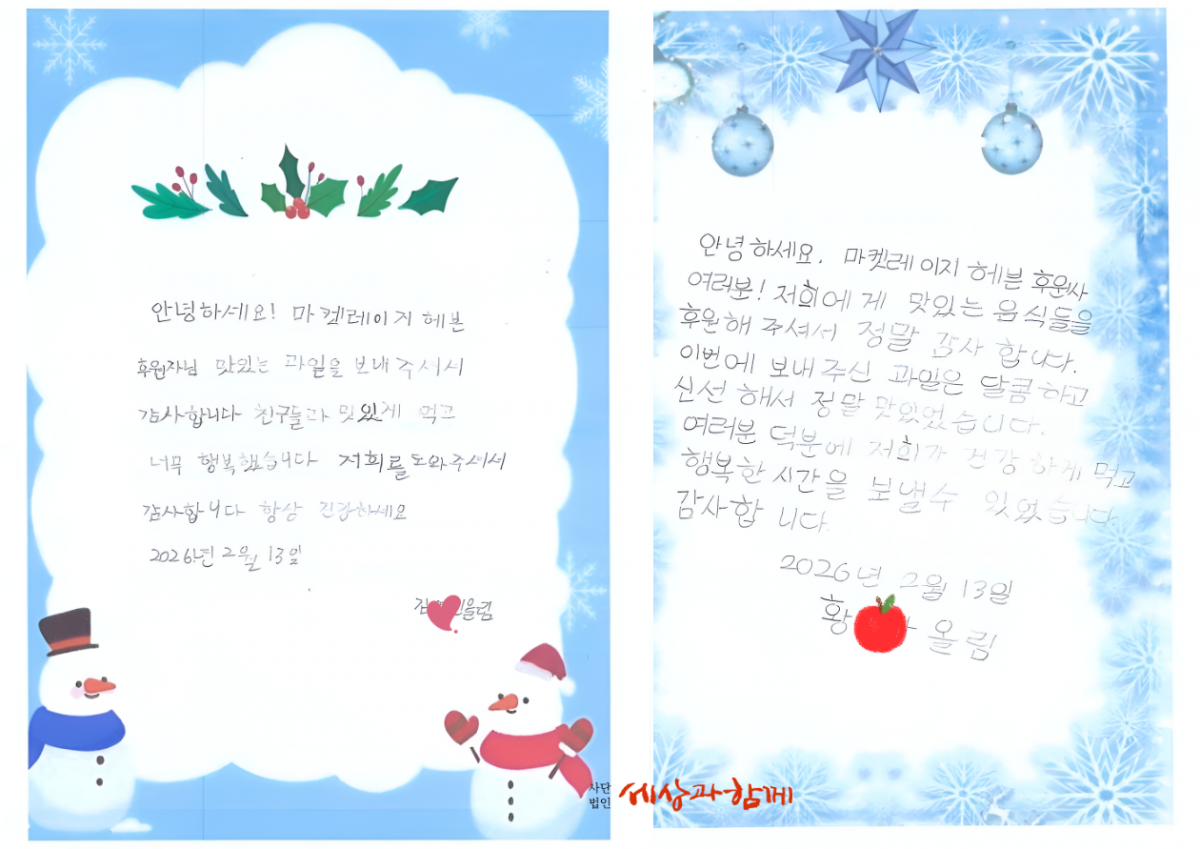 안녕하세요! 마켓레이지 헤븐
후원자님 맛있는 과일을 보내주셔서
감사합니다 친구들과 맛있게 먹고
너무 행복했습니다 저희를 도와주셔서
감사합니다 항상 건강하세요
2026년 2월 13일
김 올림
안녕하세요. 마켓레이지 헤븐 후원사
여러분! 저희에게 맛있는 음식들을
후원해 주셔서 정말 감사 합니다.
이번에 보내주신 과일은 달콤하고
신선 해서 정말 맛있었습니다.
여러분 덕분에 저희가 건강하게 먹고
행복한 시간을 보낼수 있었습니다
감사합 니다.
2026년 2월 13일
황 올림
사단
법인
세상과함께